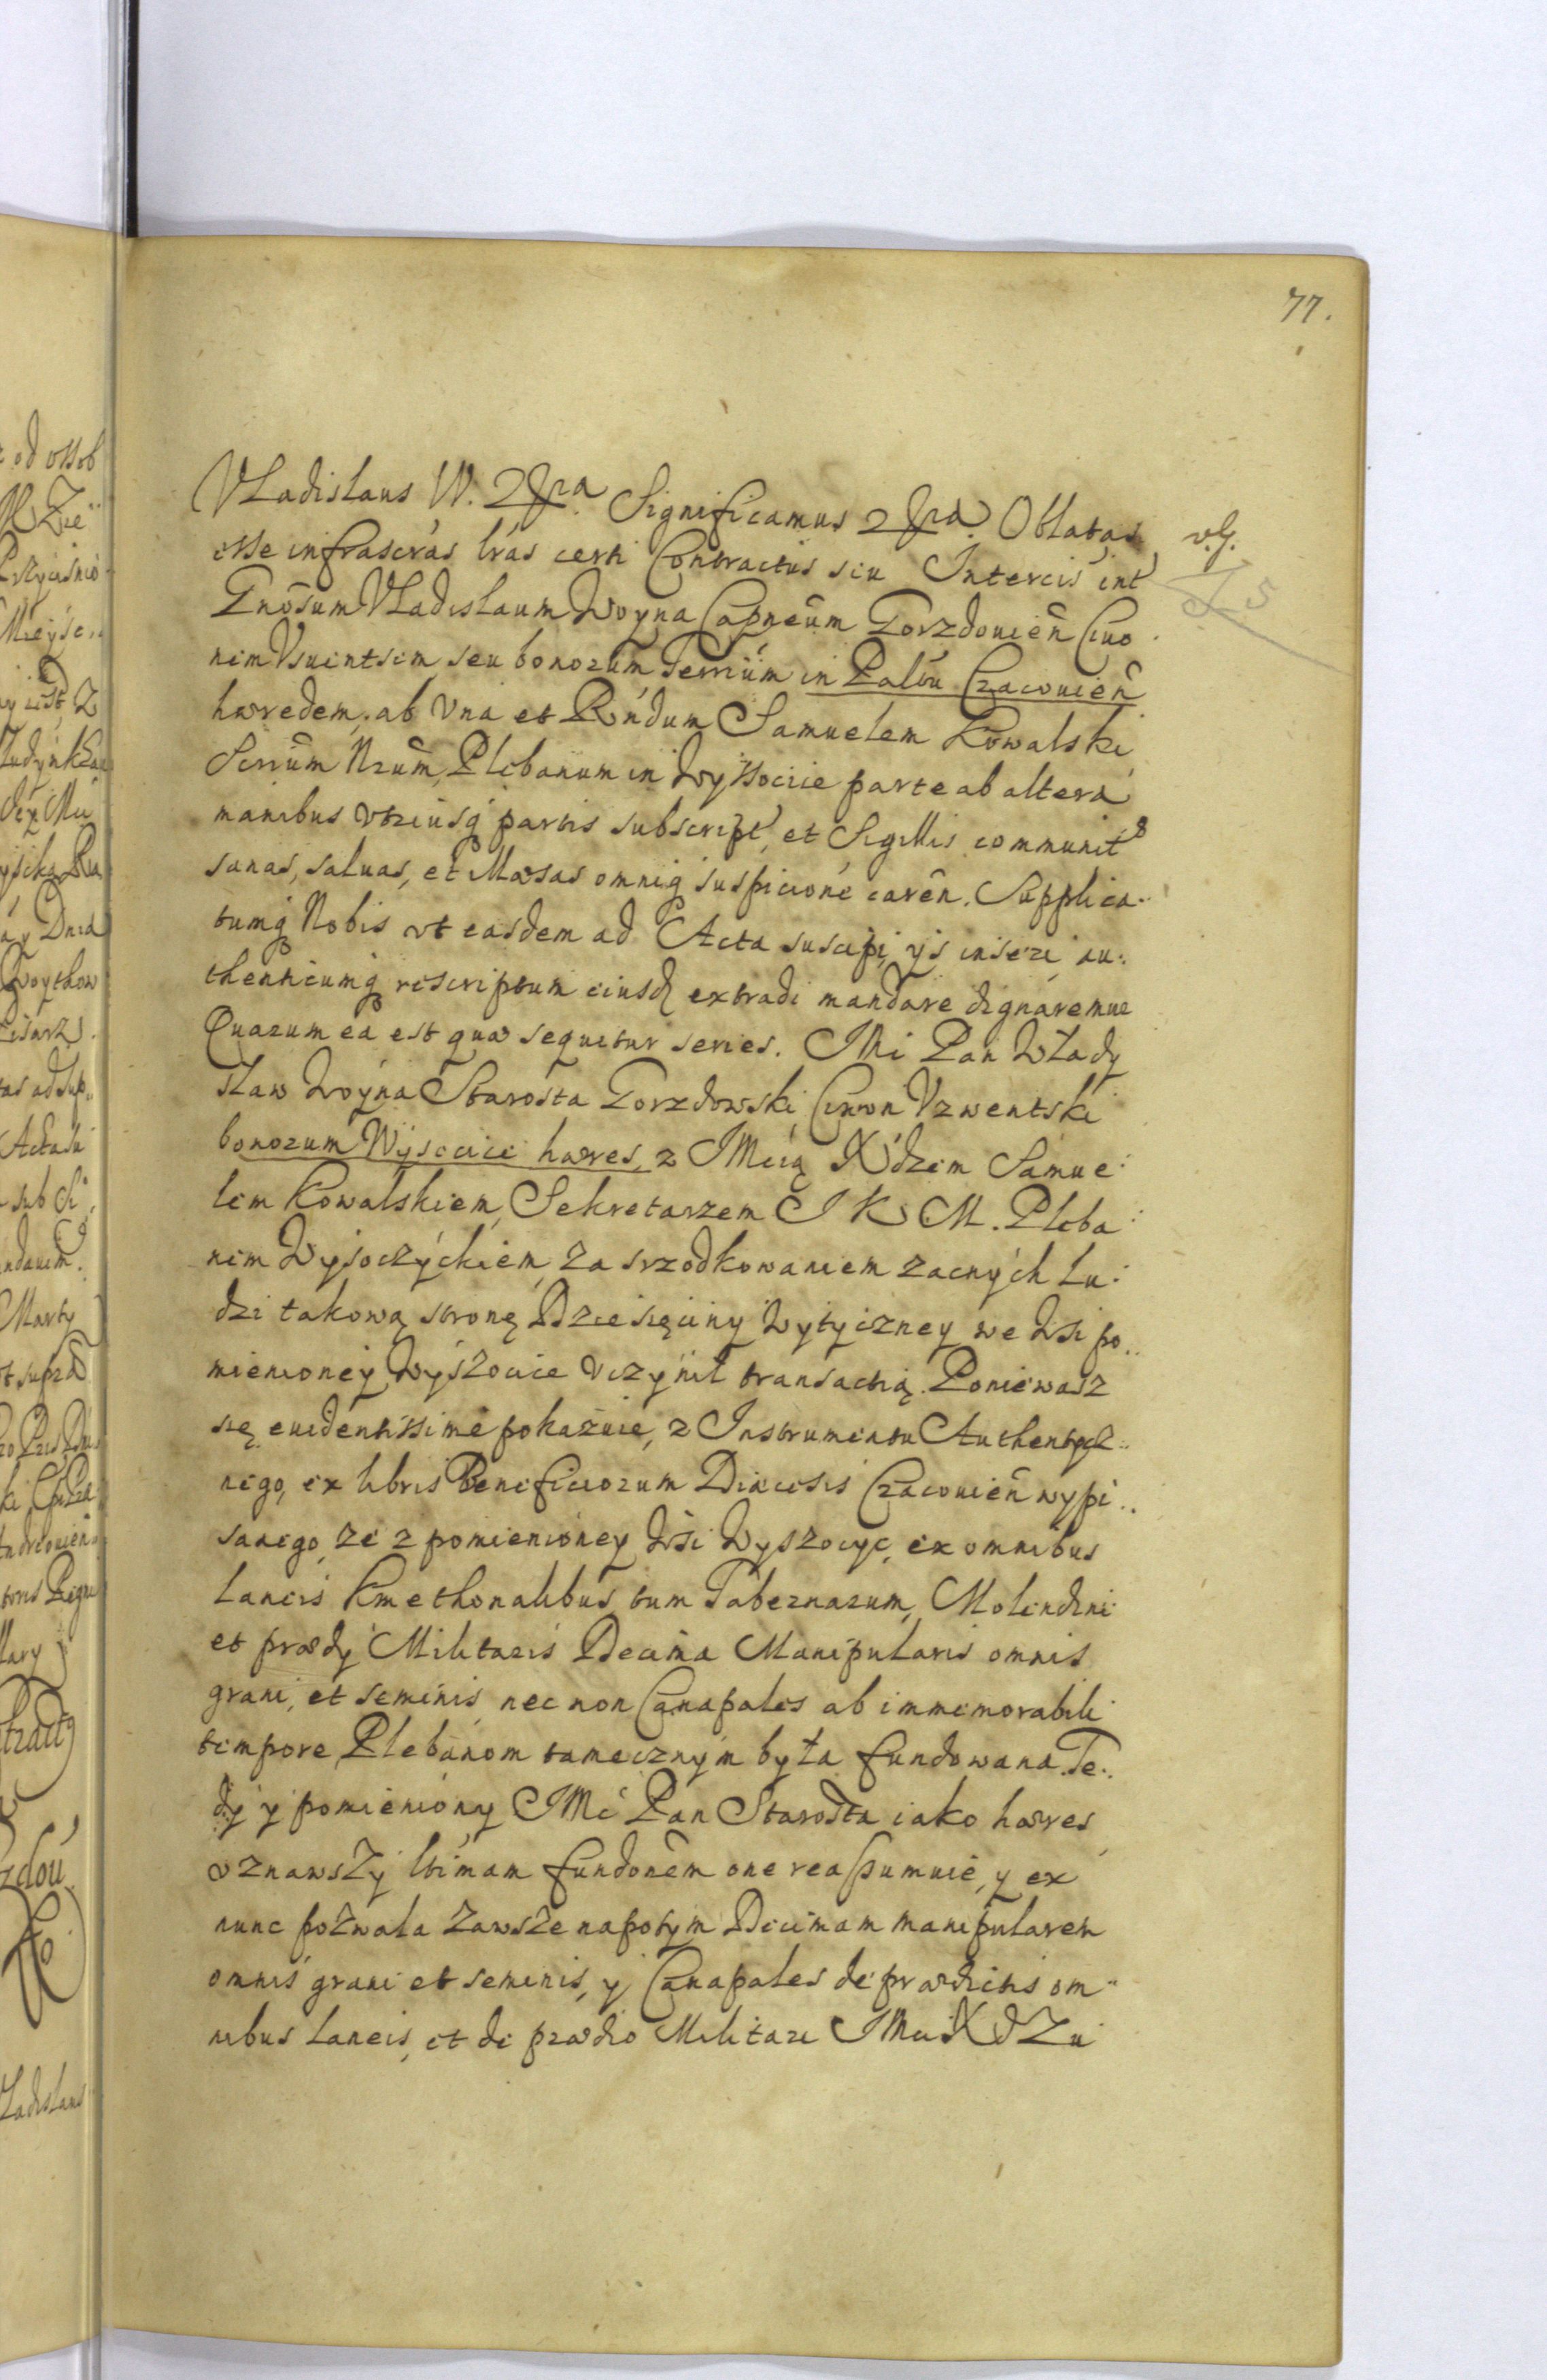 77.
VLadislaus IV. 2 Jpra Significamus 2 Jpra Oblatas v.g.
esse infrascras lras certi Contractus seu Intercis int
Gnosum VLadislaum Woyna Capneum Gorzdovien Civo
nem Vsventsem, seu bonorum Terrium in Paltu Cracovien
hæredem, ab vna et Rndum Samuelem Kowalski
Secrium Nrum, Plebanum in Wyssocice parte ab altera
manibus vtriusq partis subscript, et Sigillis communit
sanas, saluas, et illæsas omniq suspicione caren. Supplica..
tumq Nobis vt easdem ad Acta suscipi, ys inseri, au:
thenticumq rescriptum eiusd extradi mandare dignaremur
Quarum ea est quæ sequitur series. IMć Pan Włady
sław Woyna Starosta Gorzdowski, Ciwon Vzwentski
bonorum Wysocice hæres, z IMcią Xdzem Samue:
lem Kowalskiem, Sekretarzem I K M. Pleba:
nem Wysoczyckiem, za srzodkowaniem zacnych Lu:
dzi takową stronę Dziesięciny Wytyczney we Wsi po..
mienioney Wyszocice vczynił transactią. Poniewasz
się evidentissime pokazuie, z Instrumentu Authentycz:
nego, ex libris Beneficiorum Diæcesis Cracovien wypi..
sanego, ze z pomienioney Wsi Wyszocyc, ex omnibus
Laneis Kmethonalibus tum Tabernarum, Molendini
et prædy Militaris Decima Manipularis omnis
grani, et seminis, nec non Canapales ab immemorabili
tempore Plebanom tamecznym była fundowana. Te..
dy y pomieniony IMć Pan Starosta iako hæres,
vznawszy ltimam fundonem one reassumuie, y ex
nunc pozwala zawsze napotym Decimam manipularem
omnis grani et seminis, y Canapales de prædictis om
nibus Laneis, et de prædio Militari IMci XdZu